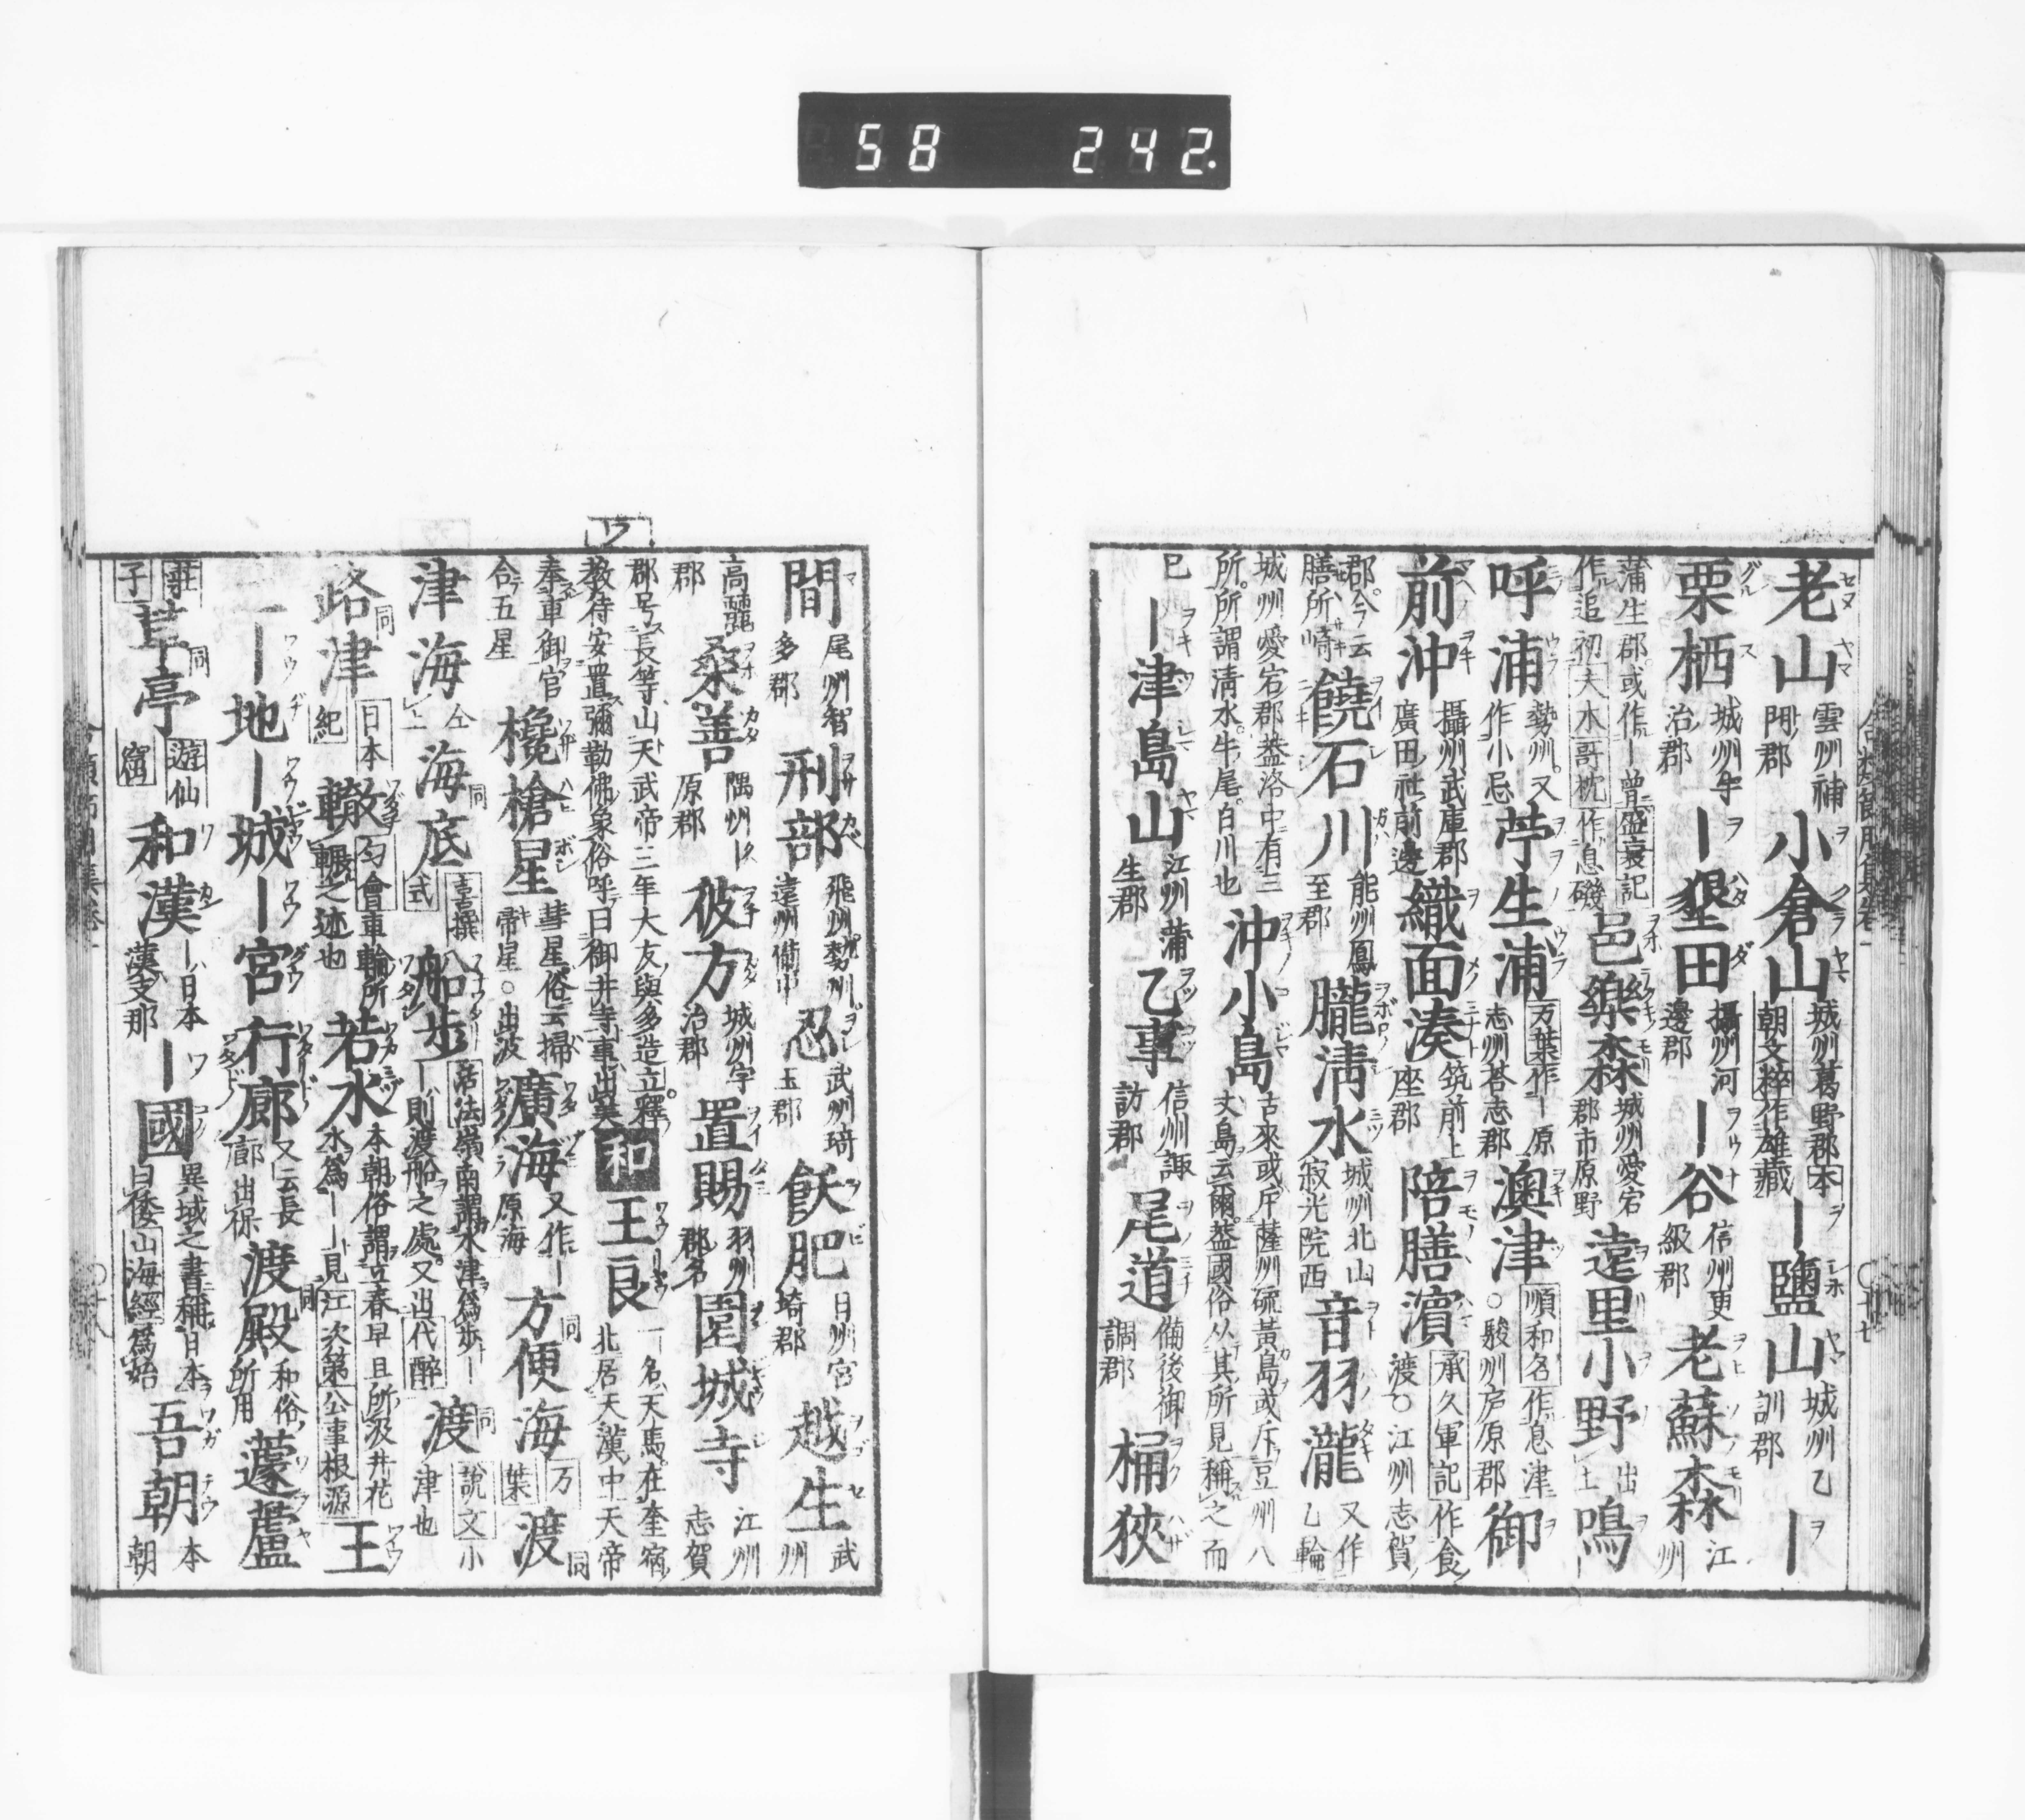 58 242.
老山 雲州補陁郡 小倉山 城州葛野郡本朝文粹作雄藏 ー鹽山 城州乙訓郡 ー
栗栖 城州宇治郡 ー墾田 攝州河邊郡 ー谷 信州更級郡 老蘇森 江州
蒲生郡或作ー曾盛衰記作追初夫木哥枕作息磯 邑樂森 城州愛宕郡市原野 遠里小野 出上 鳴
呼浦 勢州又作小忌 苧生浦 万葉作ー原志州荅志郡 澳津 順和名作息津○駿州庐原郡 御
前沖 攝州武庫郡廣田社前邊 織面湊 筑前上座郡 陪膳濱 承久軍記作食渡○江州志賀
郡今云膳所崎 饒石川 能州鳳至郡 朧淸水 城州北山寂光院西 音羽瀧 又作乙輪
城州愛宕郡葢洛中有三所所謂淸水牛尾白川也 沖小島 古來或斥薩州硫黃島或斥豆州八丈島云爾葢國俗从其所見稱之而
已 ー津島山 江州蒲生郡 乙事 信州諏訪郡 尾道 備後御調郡 桶狹
間 尾州智多郡 刑部 飛州勢州遠州備中 忍 武州琦玉郡 飫肥 日州宮埼郡 越生 武州
高麗郡 桑善 隅州ー原郡 彼方 城州宇治郡 置賜 羽州郡名 園城寺 江州志賀
郡号長等山天武帝三年大友與多造立釋敎待安置彌勒佛象俗呼曰御井寺事出美 和 王良 一名天馬在奎宿北居天漢中天帝
奉車御官合五星 欃槍星 彗星俗云掃帝星○出波 廣海 又作ー原海 方便海 同万葉 渡 同
津海 仝上 海底 同喜撰式 船步 ー則渡船之處又出代醉居法嶺南謂水津爲步 渡 同說文小津也
路津 同日本紀 轍 匀會車輪所輾之迹也 若水 本朝俗謂立春早旦所汲井花水爲ーー見江次第公事根源 王
ー地 ー城 ー宮 行廊 又云長廊出保 渡殿 同和俗所用 蘧蘆
莊子 草亭 同遊仙窟 和漢 ー日本漢支那 ー國 異域之書稱日本曰倭山海經爲始 吾朝 本朝